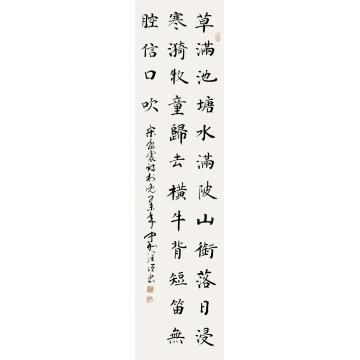 草滿池塘水滿陂山銜落日浸
寒漪牧童歸去橫牛背短笛無
腔信口吹
宋雷震詩村晚